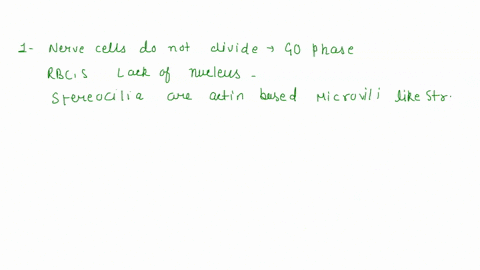 1- Nerve cells do not divide → G0 phase
RBC,s Lack of nucleus -
Stereocilia are actin based Microvili like Str.